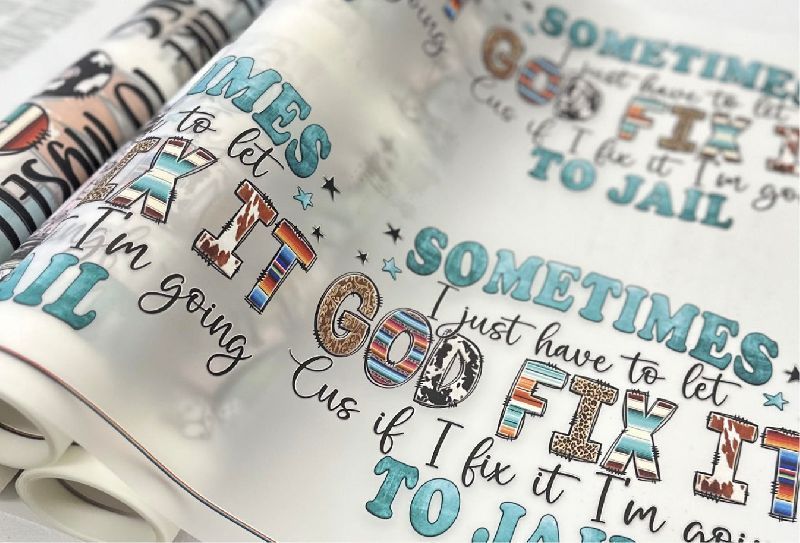 going
SOMETIMES
I just have to let
GOD FIX I
Cus if I fix it I'm go
TO JAIL
TIMES
to let
FIX IT
I'm going
AIL
SOMETIMES
I just have to let
GOD FIX IT
Cus if I fix it I'm goi
TO JAIL